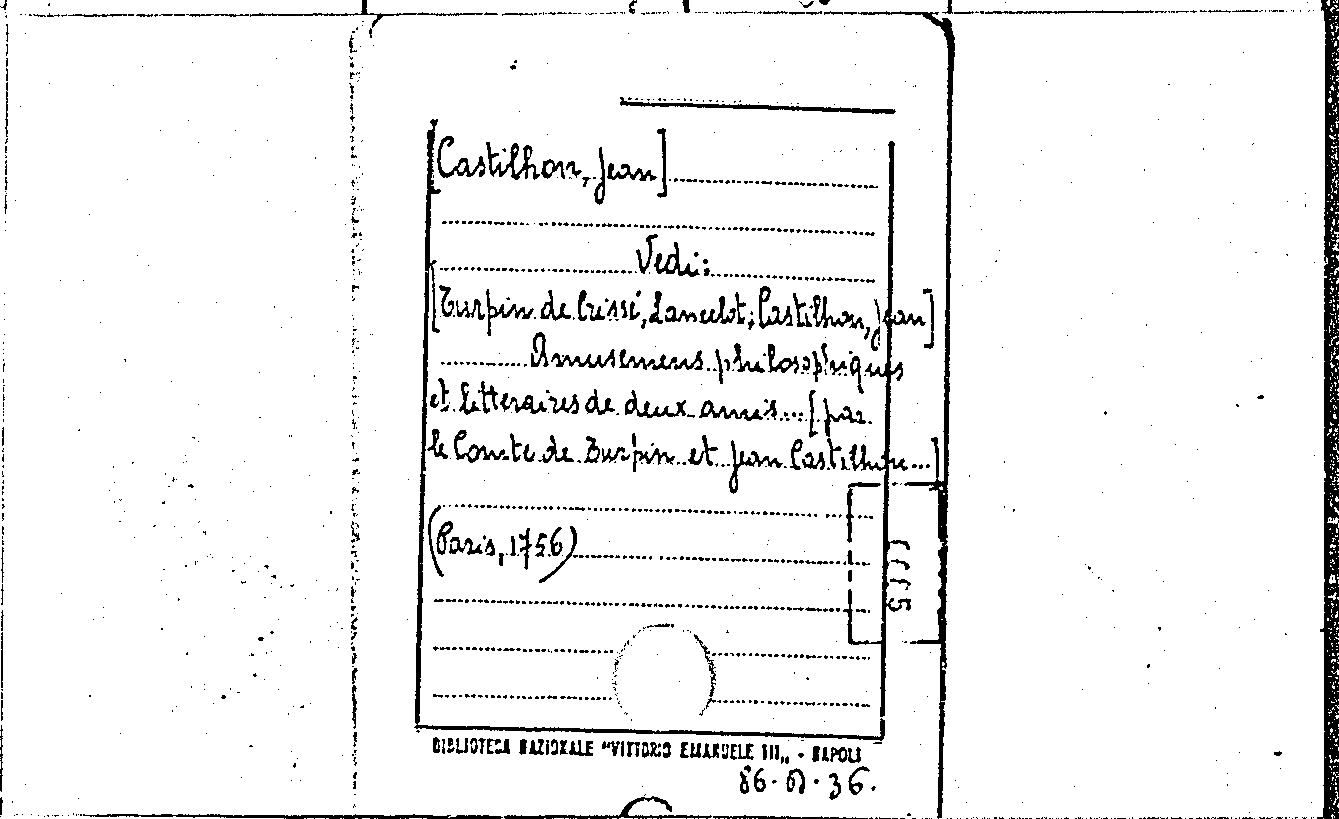 [Castilhon, Jean]
Vedi:
[Turpin de Crissé, Lancelot; Castilhon, Jean]
Amusemens philosophiques
et litteraires de deux amis... [par
le Comte de Turpin et Jean Castilhon...]
(Paris, 1756)
BIBLIOTECA NAZIONALE "VITTORIO EMANUELE III„ - NAPOLI